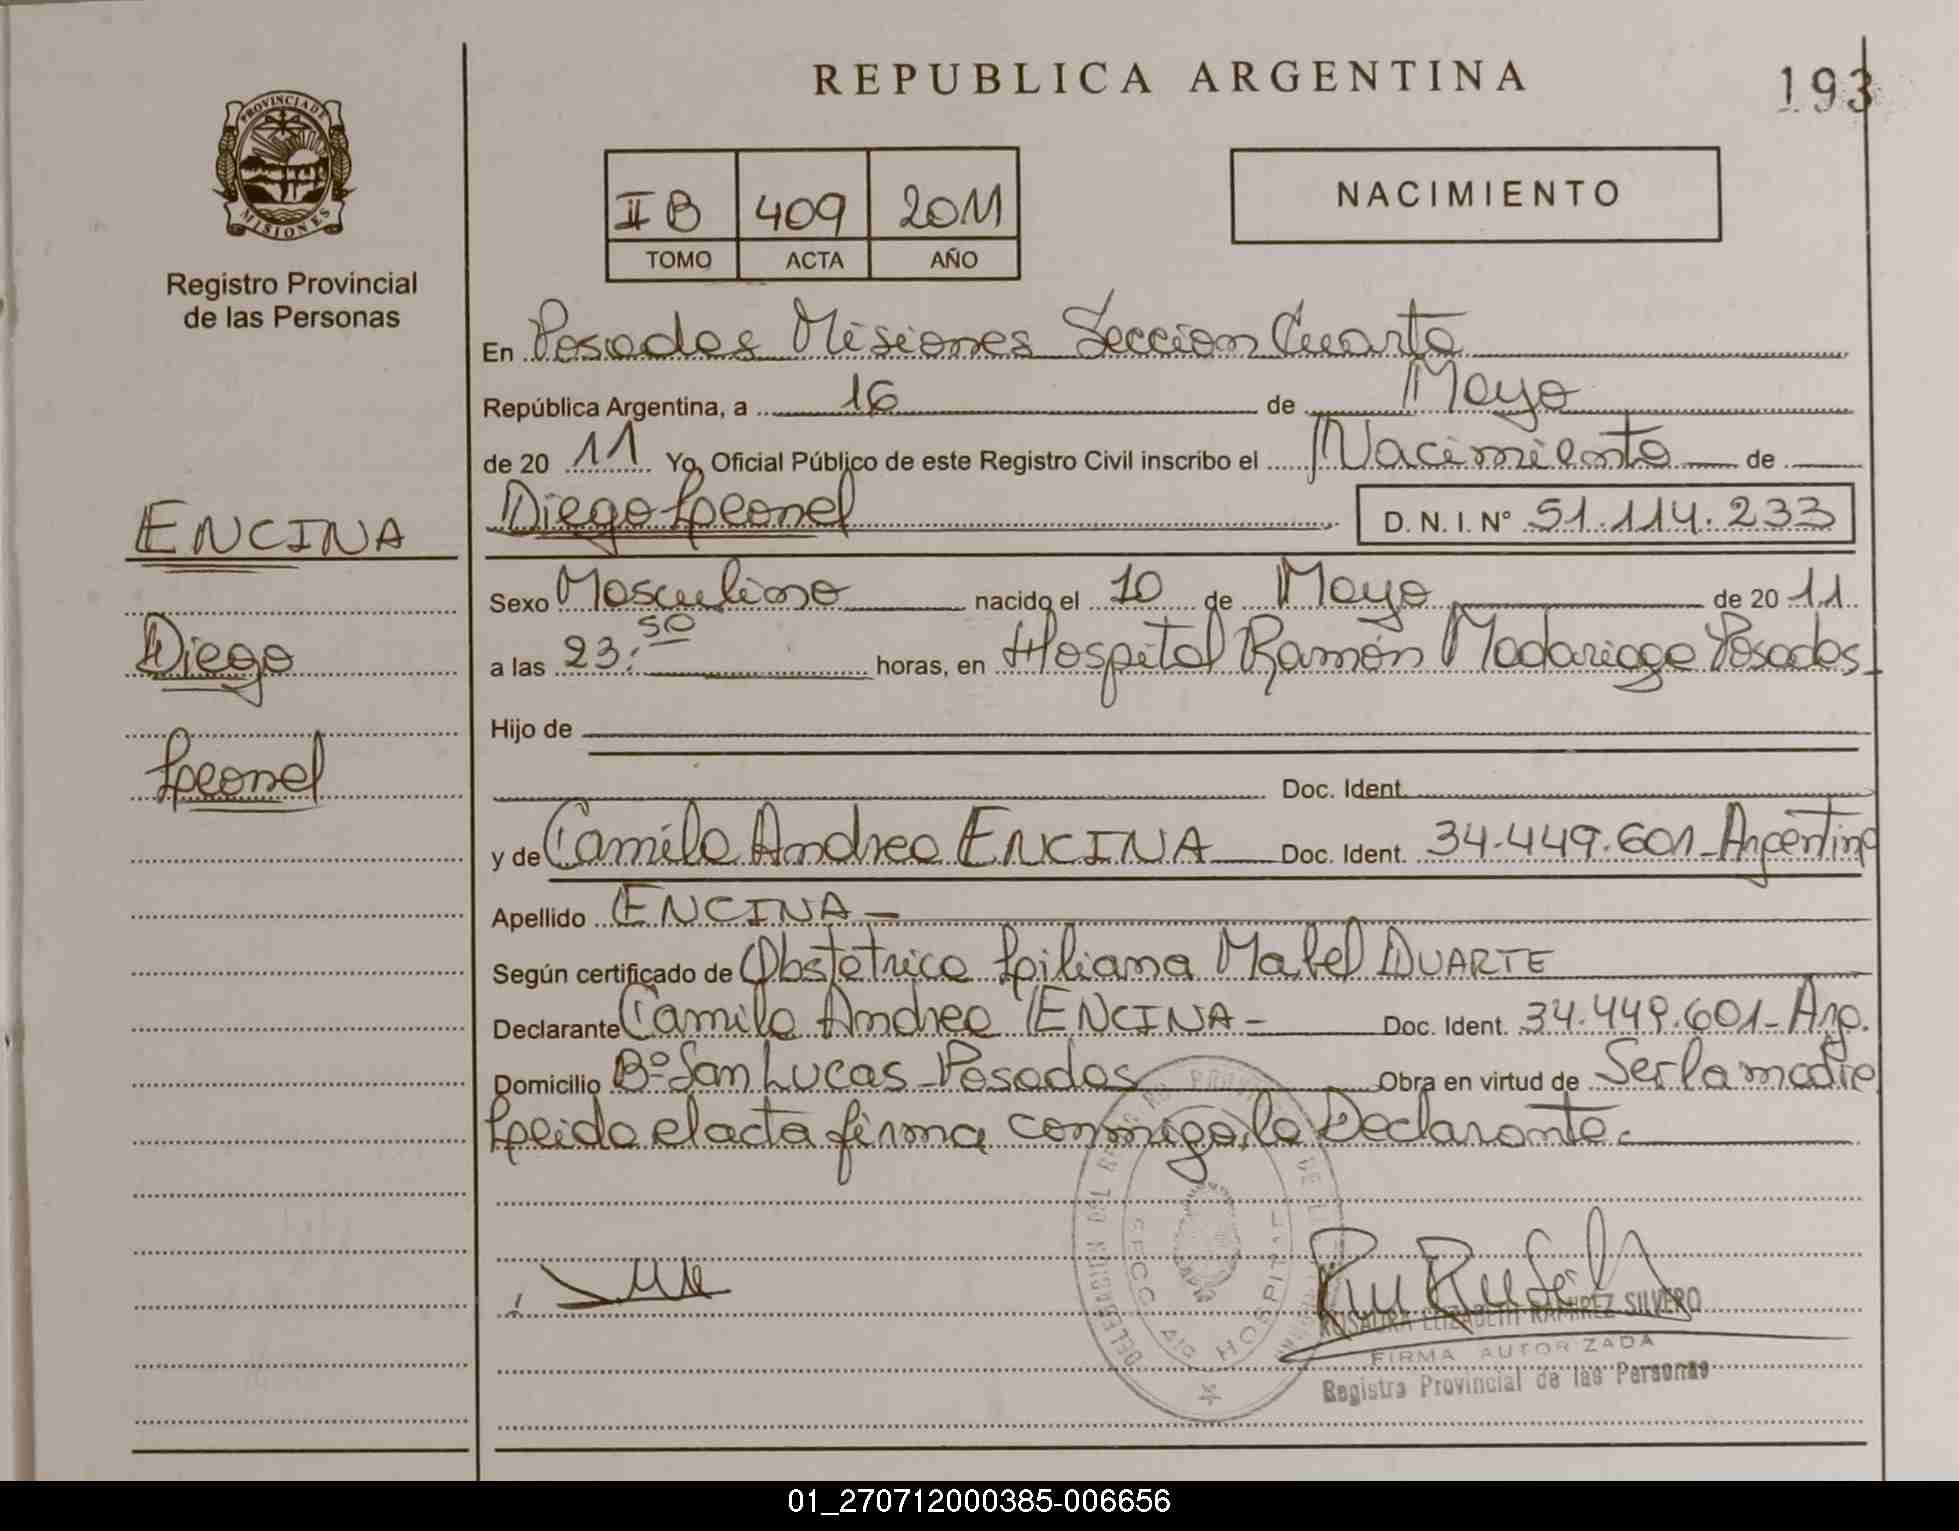 REPUBLICA ARGENTINA
193
PROVINCIA DE
MISIONES
Registro Provincial
de las Personas
II B 409 2011
TOMO ACTA AÑO
NACIMIENTO
En Posadas Misiones Seccion Cuarta
República Argentina, a 16 de Mayo
de 20 11 Yo, Oficial Público de este Registro Civil inscribo el Nacimiento de
Diego Leonel D. N. I. Nº 51.114.233
ENCINA
Diego
Leonel
Sexo Masculino nacido el 10 de Mayo de 20 11
a las 23:50 horas, en Hospital Ramón Madariaga Posadas
Hijo de
Doc. Ident.
y de Camila Andrea ENCINA Doc. Ident. 34.449.601 - Argentina
Apellido ENCINA -
Según certificado de Obstetrica Liliana Mabel DUARTE
Declarante Camila Andrea ENCINA - Doc. Ident. 34.449.601 - Arg.
Domicilio Bº San Lucas - Posadas Obra en virtud de Ser la madre
Leida el acta firma conmigo, la Declarante.
ROSAURA ELIZABETH RAMIREZ SILVERO
FIRMA AUTORIZADA
Registro Provincial de las Personas
01_270712000385-006656